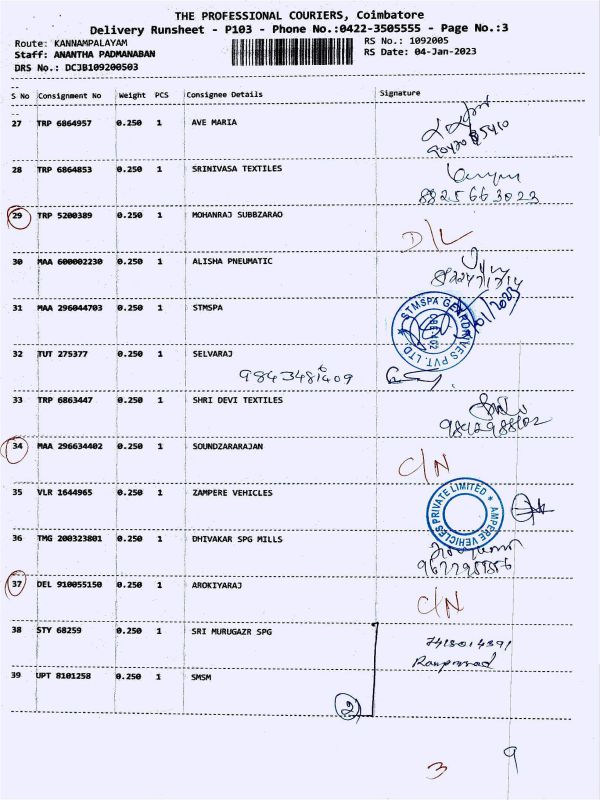 THE PROFESSIONAL COURIERS, Coimbatore
Delivery Runsheet - P103 - Phone No.:0422-3505555 - Page No.:3
Route: KANNAMPALAYAM RS No.: 1092005
Staff: ANANTHA PADMANABAN RS Date: 04-Jan-2023
DRS No.: DCJB109200503
S No Consignment No Weight PCS Consignee Details Signature
27 TRP 6864957 0.250 1 AVE MARIA
28 TRP 6864853 0.250 1 SRINIVASA TEXTILES
8825663023
29 TRP 5200389 0.250 1 MOHANRAJ SUBBZARAO
D/L
30 MAA 600002230 0.250 1 ALISHA PNEUMATIC
31 MAA 296044703 0.250 1 STMSPA
STMSPA GEARDRIVES PVT. LTD
32 TUT 275377 0.250 1 SELVARAJ
33 TRP 6863447 0.250 1 SHRI DEVI TEXTILES
9842988102
34 MAA 296634402 0.250 1 SOUNDZARARAJAN
C/N
35 VLR 1644965 0.250 1 ZAMPERE VEHICLES
AMPERE VEHICLES PRIVATE LIMITED
36 TMG 200323801 0.250 1 DHIVAKAR SPG MILLS
37 DEL 910055150 0.250 1 AROKIYARAJ
C/N
38 STY 68259 0.250 1 SRI MURUGAZR SPG
7418014391
Ramprasad
39 UPT 8101258 0.250 1 SMSM
2
9
3